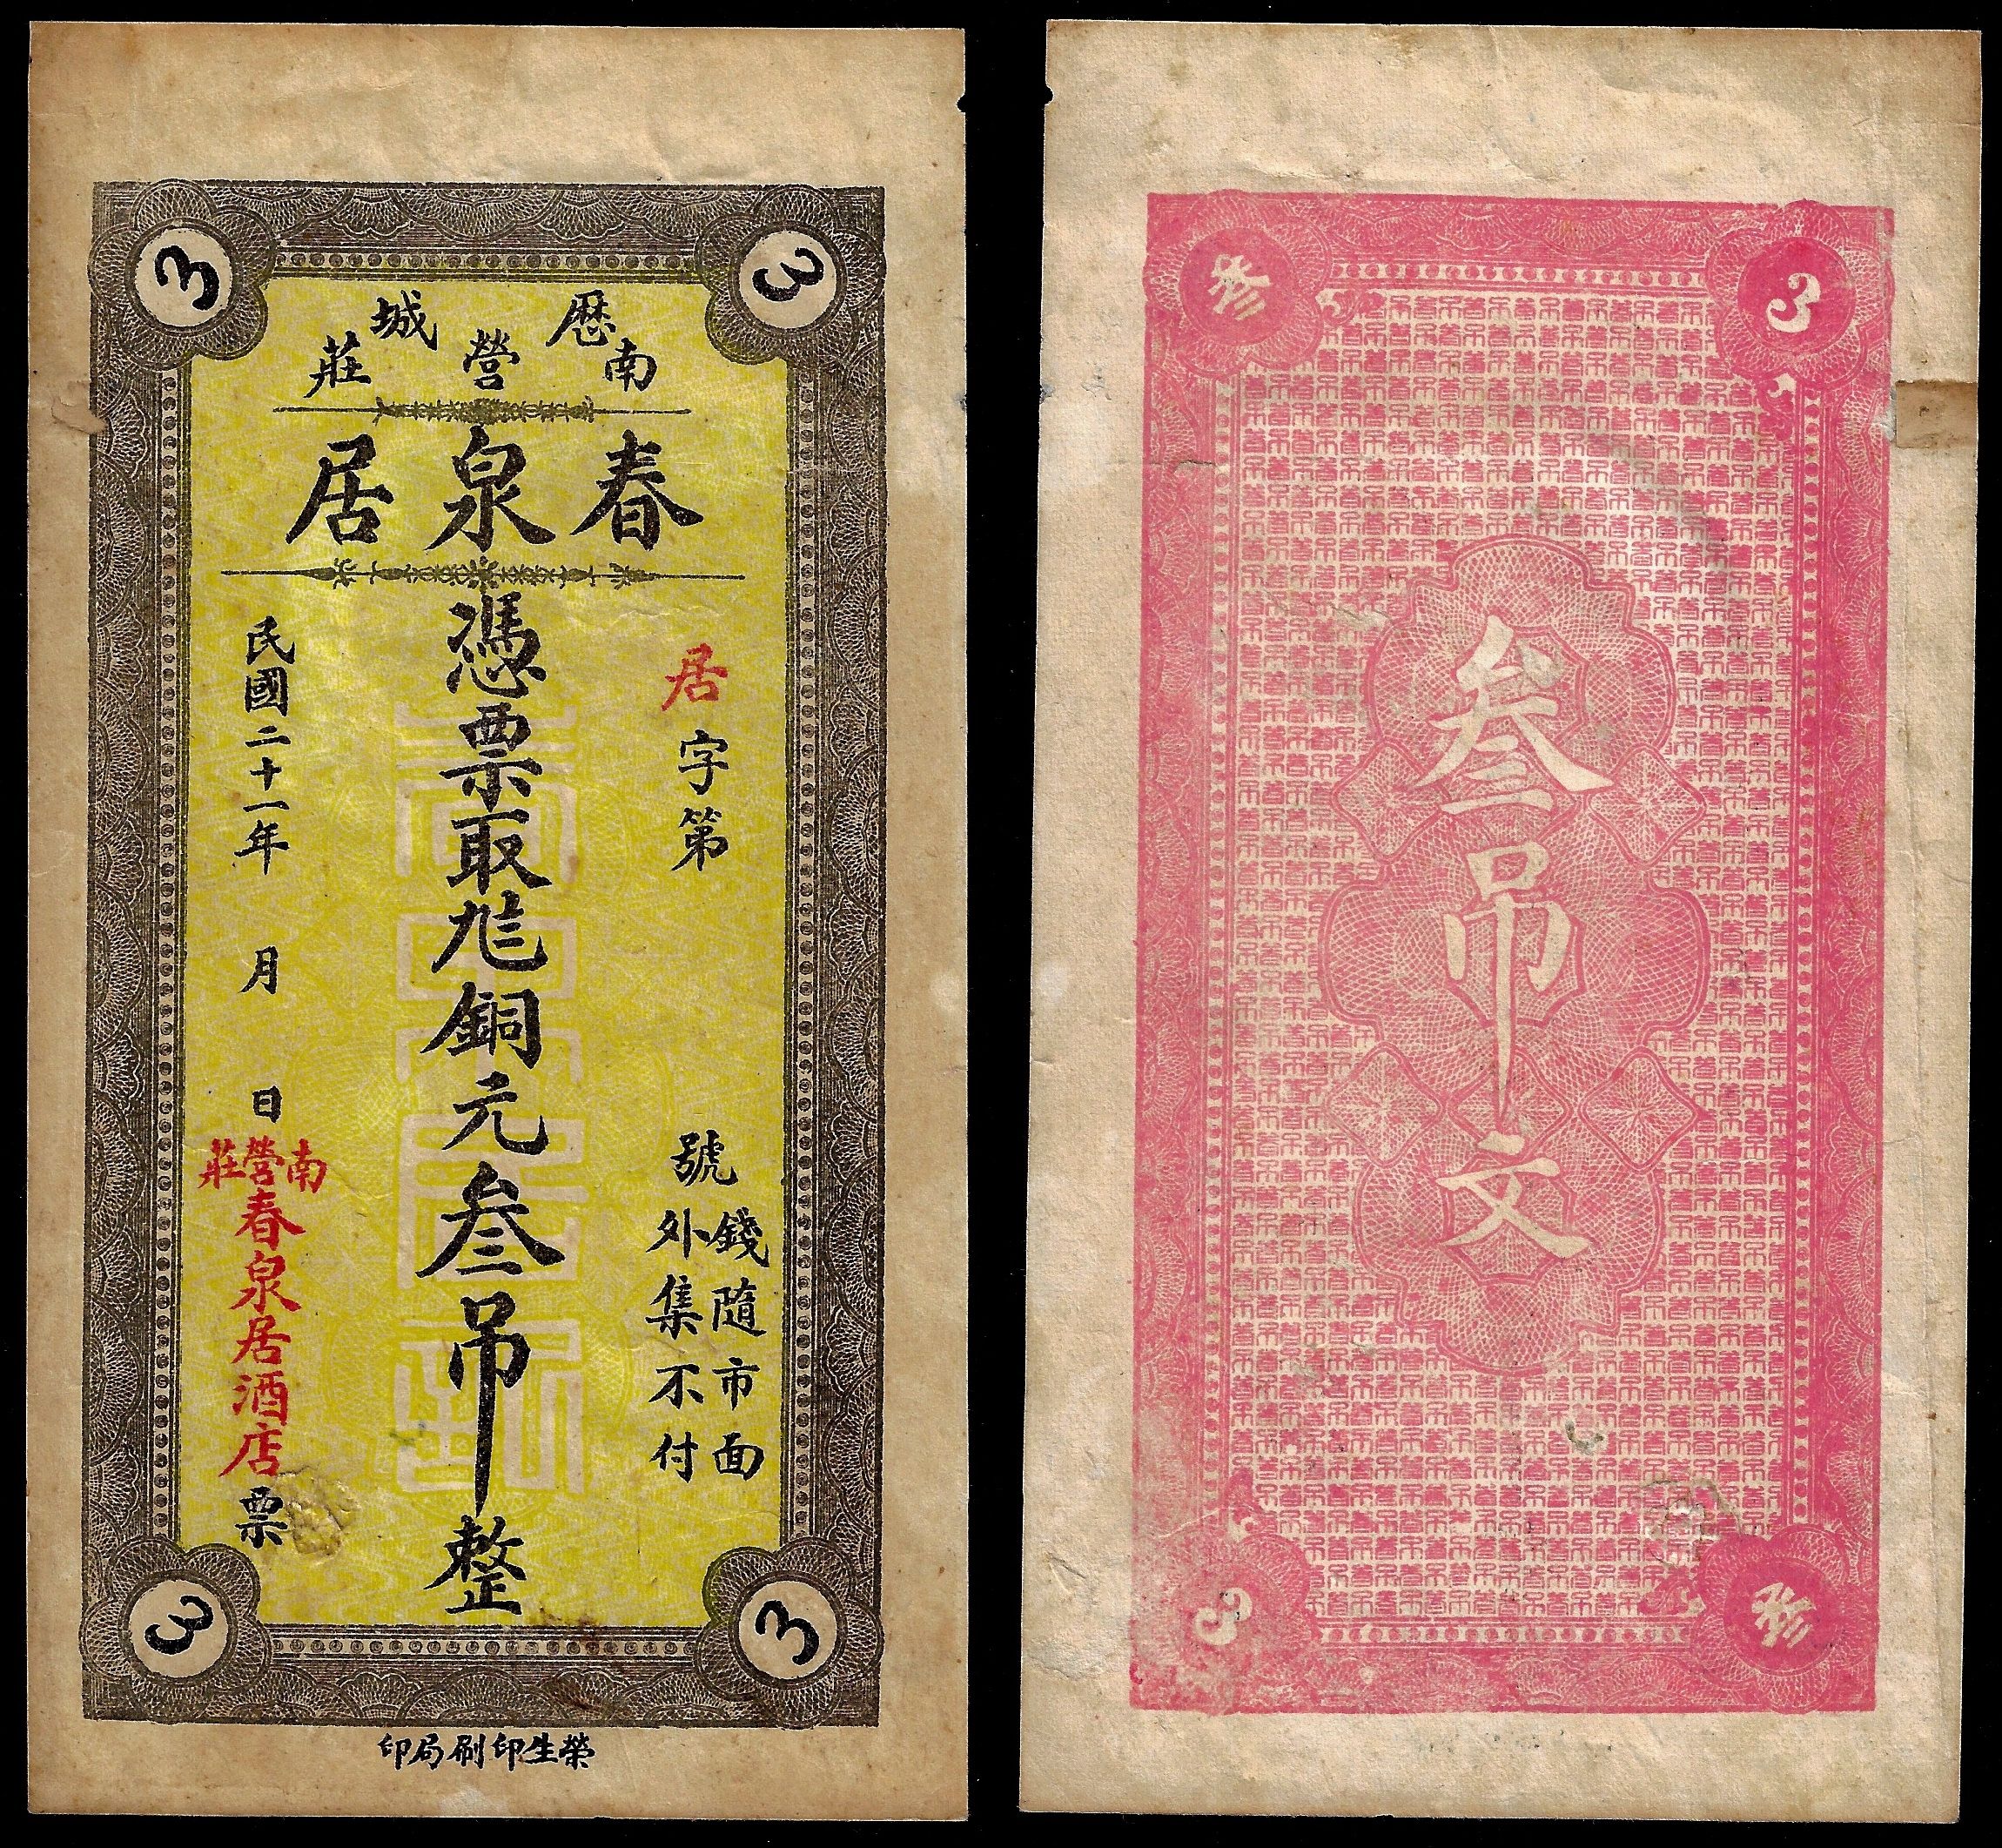 3
3
歷城
南營莊
春泉居
居字第 號
錢隨市面
外集不付
憑票取 銅元叁吊整
民國二十一年 月 日
南營莊
春泉居酒店票
3
3
榮生印刷局印
叁
3
叁吊文
3
叁